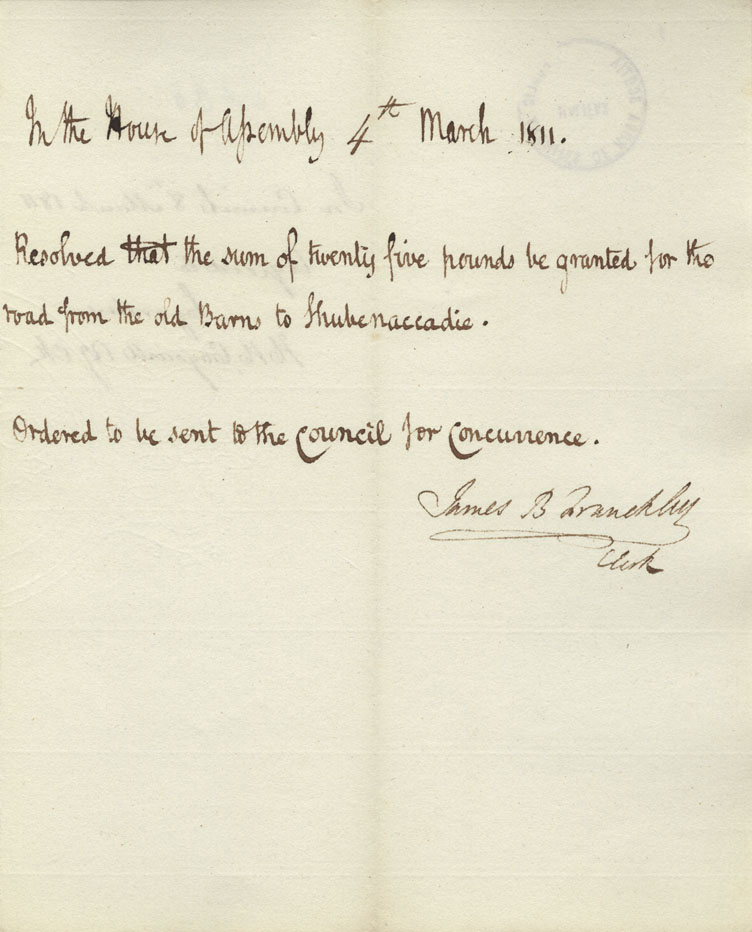 In the House of Assembly 4th March 1811.
Resolved that the sum of twenty five pounds be granted for the
road from the old Barns to Shubenaccadie.
Ordered to be sent to the Council for Concurrence.
James B Franckley
Clerk